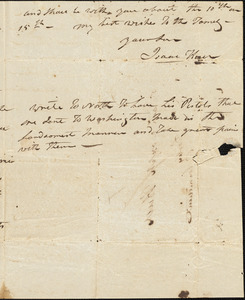 and shall be with you about the 10th or
15th - my best wishes to the Family -
your Br
Isaac
write to North to have his Pistols that
are sent to Washington made in the
handsomest manner and take great pains
with them -